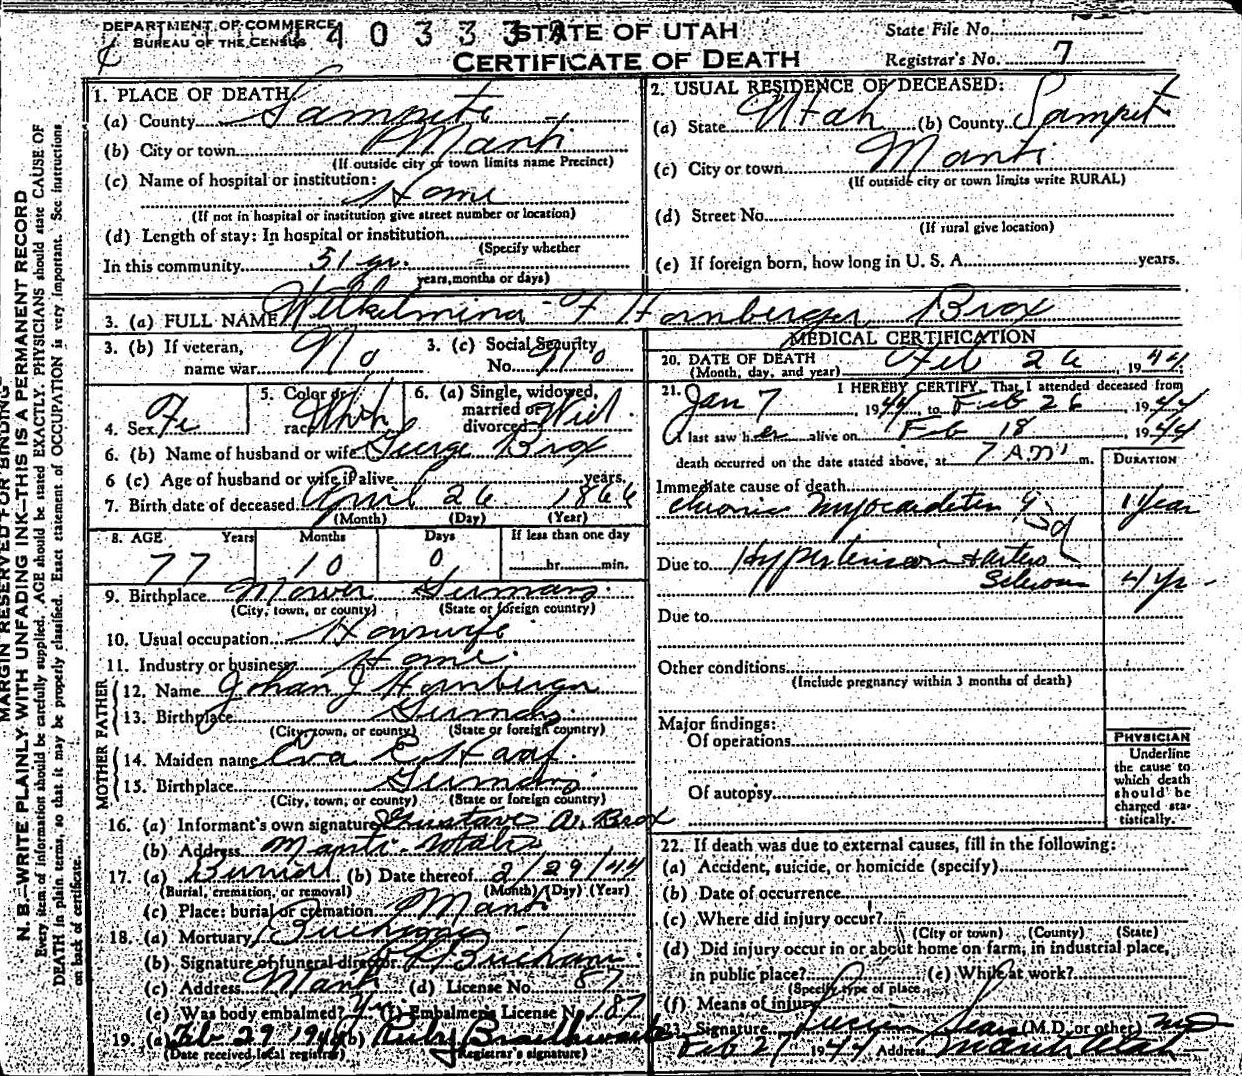 DEPARTMENT OF COMMERCE
BUREAU OF THE CENSUS
STATE OF UTAH
CERTIFICATE OF DEATH
State File No.
Registrar's No. 7
MARGIN RESERVED FOR BINDING
N. B.—WRITE PLAINLY WITH UNFADING INK—THIS IS A PERMANENT RECORD
Every item of information should be carefully supplied. AGE should be stated EXACTLY. PHYSICIANS should state CAUSE OF
DEATH in plain terms, so that it may be properly classified. Exact statement of OCCUPATION is very important. See instructions
on back of certificate.
1. PLACE OF DEATH:
(a) County Sanpete
(b) City or town Manti
(If outside city or town limits name Precinct)
(c) Name of hospital or institution:
Home
(If not in hospital or institution give street number or location)
(d) Length of stay: In hospital or institution
(Specify whether
In this community 51 yr.
years, months or days)
2. USUAL RESIDENCE OF DECEASED:
(a) State Utah (b) County Sanpete
(c) City or town Manti
(If outside city or town limits write RURAL)
(d) Street No.
(If rural give location)
(e) If foreign born, how long in U. S. A. years.
3. (a) FULL NAME Wilhelmina F Hornberger Brox
3. (b) If veteran,
name war No
3. (c) Social Security
No. No
4. Sex Fe
5. Color or
race Whit
6. (a) Single, widowed,
married or
divorced Wid.
6. (b) Name of husband or wife George Brox
6 (c) Age of husband or wife if alive years.
7. Birth date of deceased April 26 1866
(Month) (Day) (Year)
8. AGE Years Months Days If less than one day
77 10 0 hr. min.
9. Birthplace Germany
(City, town, or county) (State or foreign country)
10. Usual occupation Houswife
11. Industry or business Home
FATHER
12. Name Johan J Hornberger
13. Birthplace Germany
(City, town, or county) (State or foreign country)
MOTHER
14. Maiden name Eva E Haaf
15. Birthplace Germany
(City, town, or county) (State or foreign country)
16. (a) Informant's own signature Gustave A. Brox
(b) Address Manti - Utah
17. (a) Burial (b) Date thereof 2/29/44
(Burial, cremation, or removal) (Month) (Day) (Year)
(c) Place: burial or cremation Manti
18. (a) Mortuary
(b) Signature of funeral director
(c) Address Manti (d) License No. 87
(e) Was body embalmed? Yes (f) Embalmer's License No. 187
19. (a) Feb 29 1944 (b) Ruby Braithwaite
(Date received local registrar) (Registrar's signature)
MEDICAL CERTIFICATION
20. DATE OF DEATH
(Month, day, and year) Feb 26, 1944
21. I HEREBY CERTIFY, That I attended deceased from
Jan 7, 1944, to Feb 26, 1944
I last saw her alive on Feb 18, 1944
death occurred on the date stated above, at 7 AM m.
DURATION
Immediate cause of death
chronic myocarditis 1 year
Due to Hypertension + arterio
Sclerosis 4 yrs -
Due to
Other conditions
(Include pregnancy within 3 months of death)
Major findings:
Of operations
Of autopsy
PHYSICIAN
Underline
the cause to
which death
should be
charged sta-
tistically.
22. If death was due to external causes, fill in the following:
(a) Accident, suicide, or homicide (specify)
(b) Date of occurrence
(c) Where did injury occur?
(City or town) (County) (State)
(d) Did injury occur in or about home on farm, in industrial place,
in public place? (e) While at work?
(Specify type of place
(f) Means of injury
23. Signature Lucien Sears (M.D. or other) MD
Feb 27 1944 Address Manti, Utah